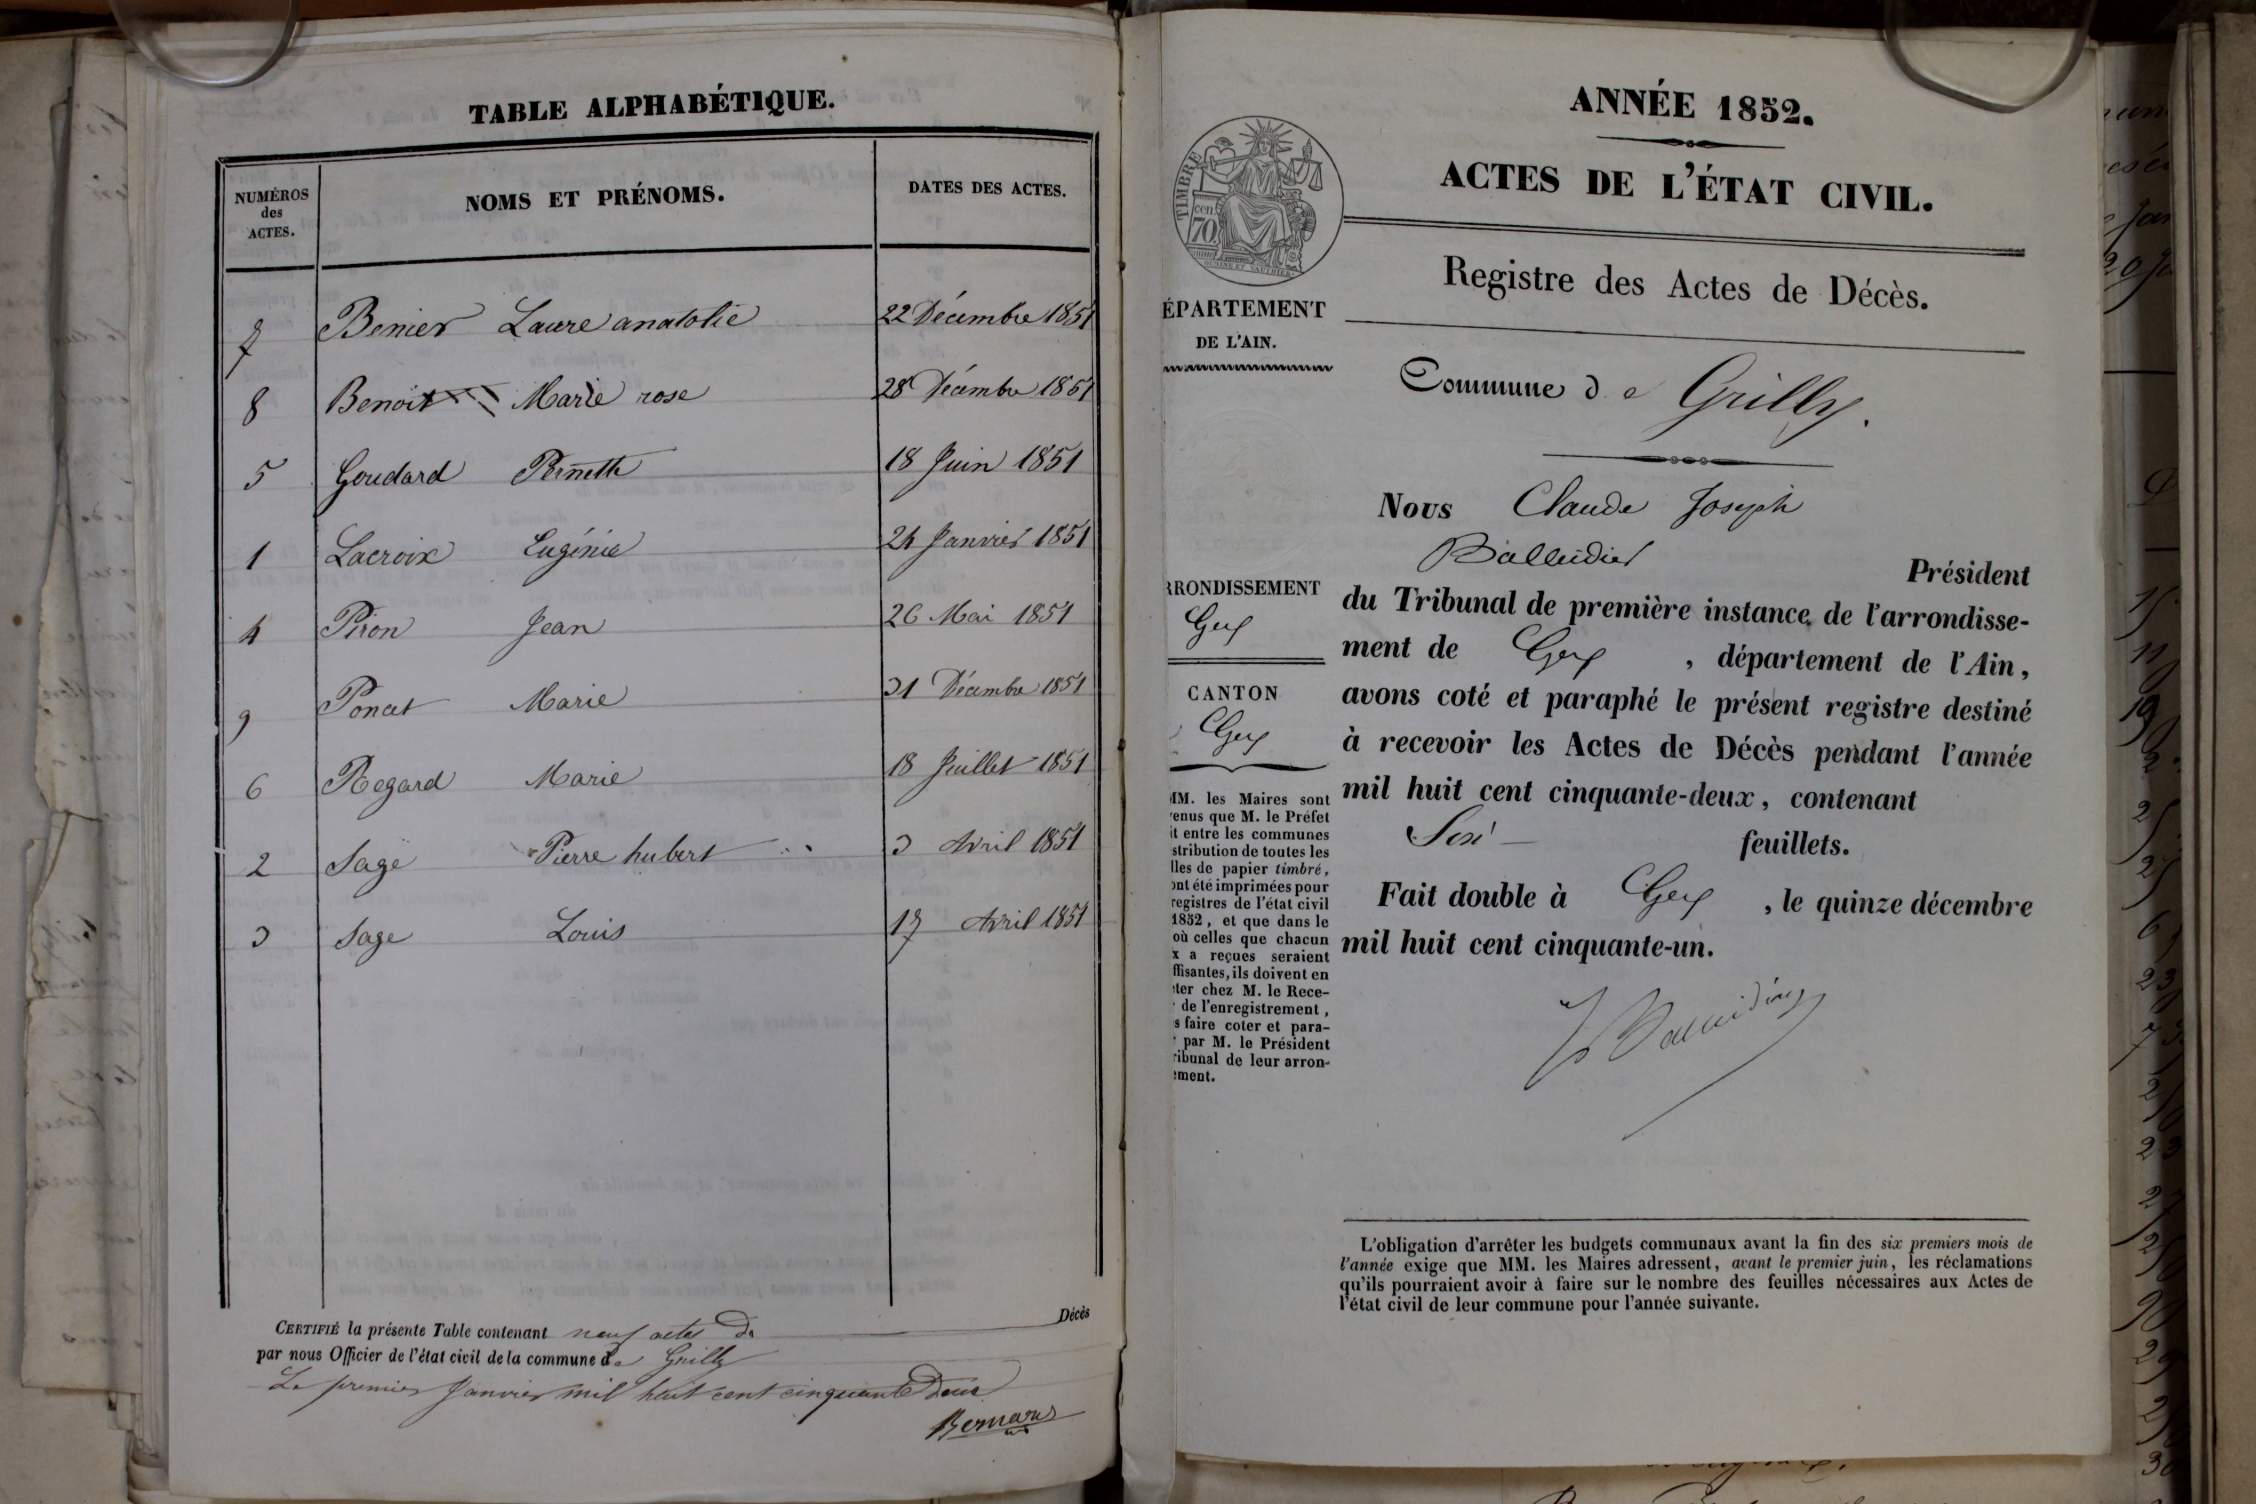 TABLE ALPHABÉTIQUE.
NUMÉROS des ACTES. NOMS ET PRÉNOMS. DATES DES ACTES.
7 Benier Laure anatolie 22 Décembre 1851
8 Benoit Marie rose 28 Décembre 1851
5 Goudard Pernette 18 Juin 1851
1 Lacroix Eugénie 24 Janvier 1851
4 Piron Jean 26 Mai 1851
9 Poncet Marie 31 Décembre 1851
6 Regard Marie 18 Juillet 1851
2 Sage Pierre hubert 3 Avril 1851
3 Sage Louis 17 Avril 1851
CERTIFIÉ la présente Table contenant neuf actes de Décès
par nous Officier de l'état civil de la commune de Grilly
Le premier Janvier mil huit cent cinquante deux
Bernard
ANNÉE 1852.
ACTES DE L'ÉTAT CIVIL.
TIMBRE
70 cen.
Registre des Actes de Décès.
ÉPARTEMENT
DE L'AIN.
Commune de Grilly.
Nous Claude Joseph
Balleidier Président
du Tribunal de première instance de l'arrondisse-
ment de Gex, département de l'Ain,
avons coté et paraphé le présent registre destiné
à recevoir les Actes de Décès pendant l'année
mil huit cent cinquante-deux, contenant
feuillets.
Fait double à Gex, le quinze décembre
mil huit cent cinquante-un.
RRONDISSEMENT
Gex
CANTON
Gex
MM. les Maires sont
enus que M. le Préfet
it entre les communes
stribution de toutes les
lles de papier timbré,
ont été imprimées pour
registres de l'état civil
1852, et que dans le
où celles que chacun
x a reçues seraient
ffisantes, ils doivent en
ter chez M. le Rece-
de l'enregistrement,
s faire coter et para-
par M. le Président
ribunal de leur arron-
ement.
L'obligation d'arrêter les budgets communaux avant la fin des six premiers mois de
l'année exige que MM. les Maires adressent, avant le premier juin, les réclamations
qu'ils pourraient avoir à faire sur le nombre des feuilles nécessaires aux Actes de
l'état civil de leur commune pour l'année suivante.